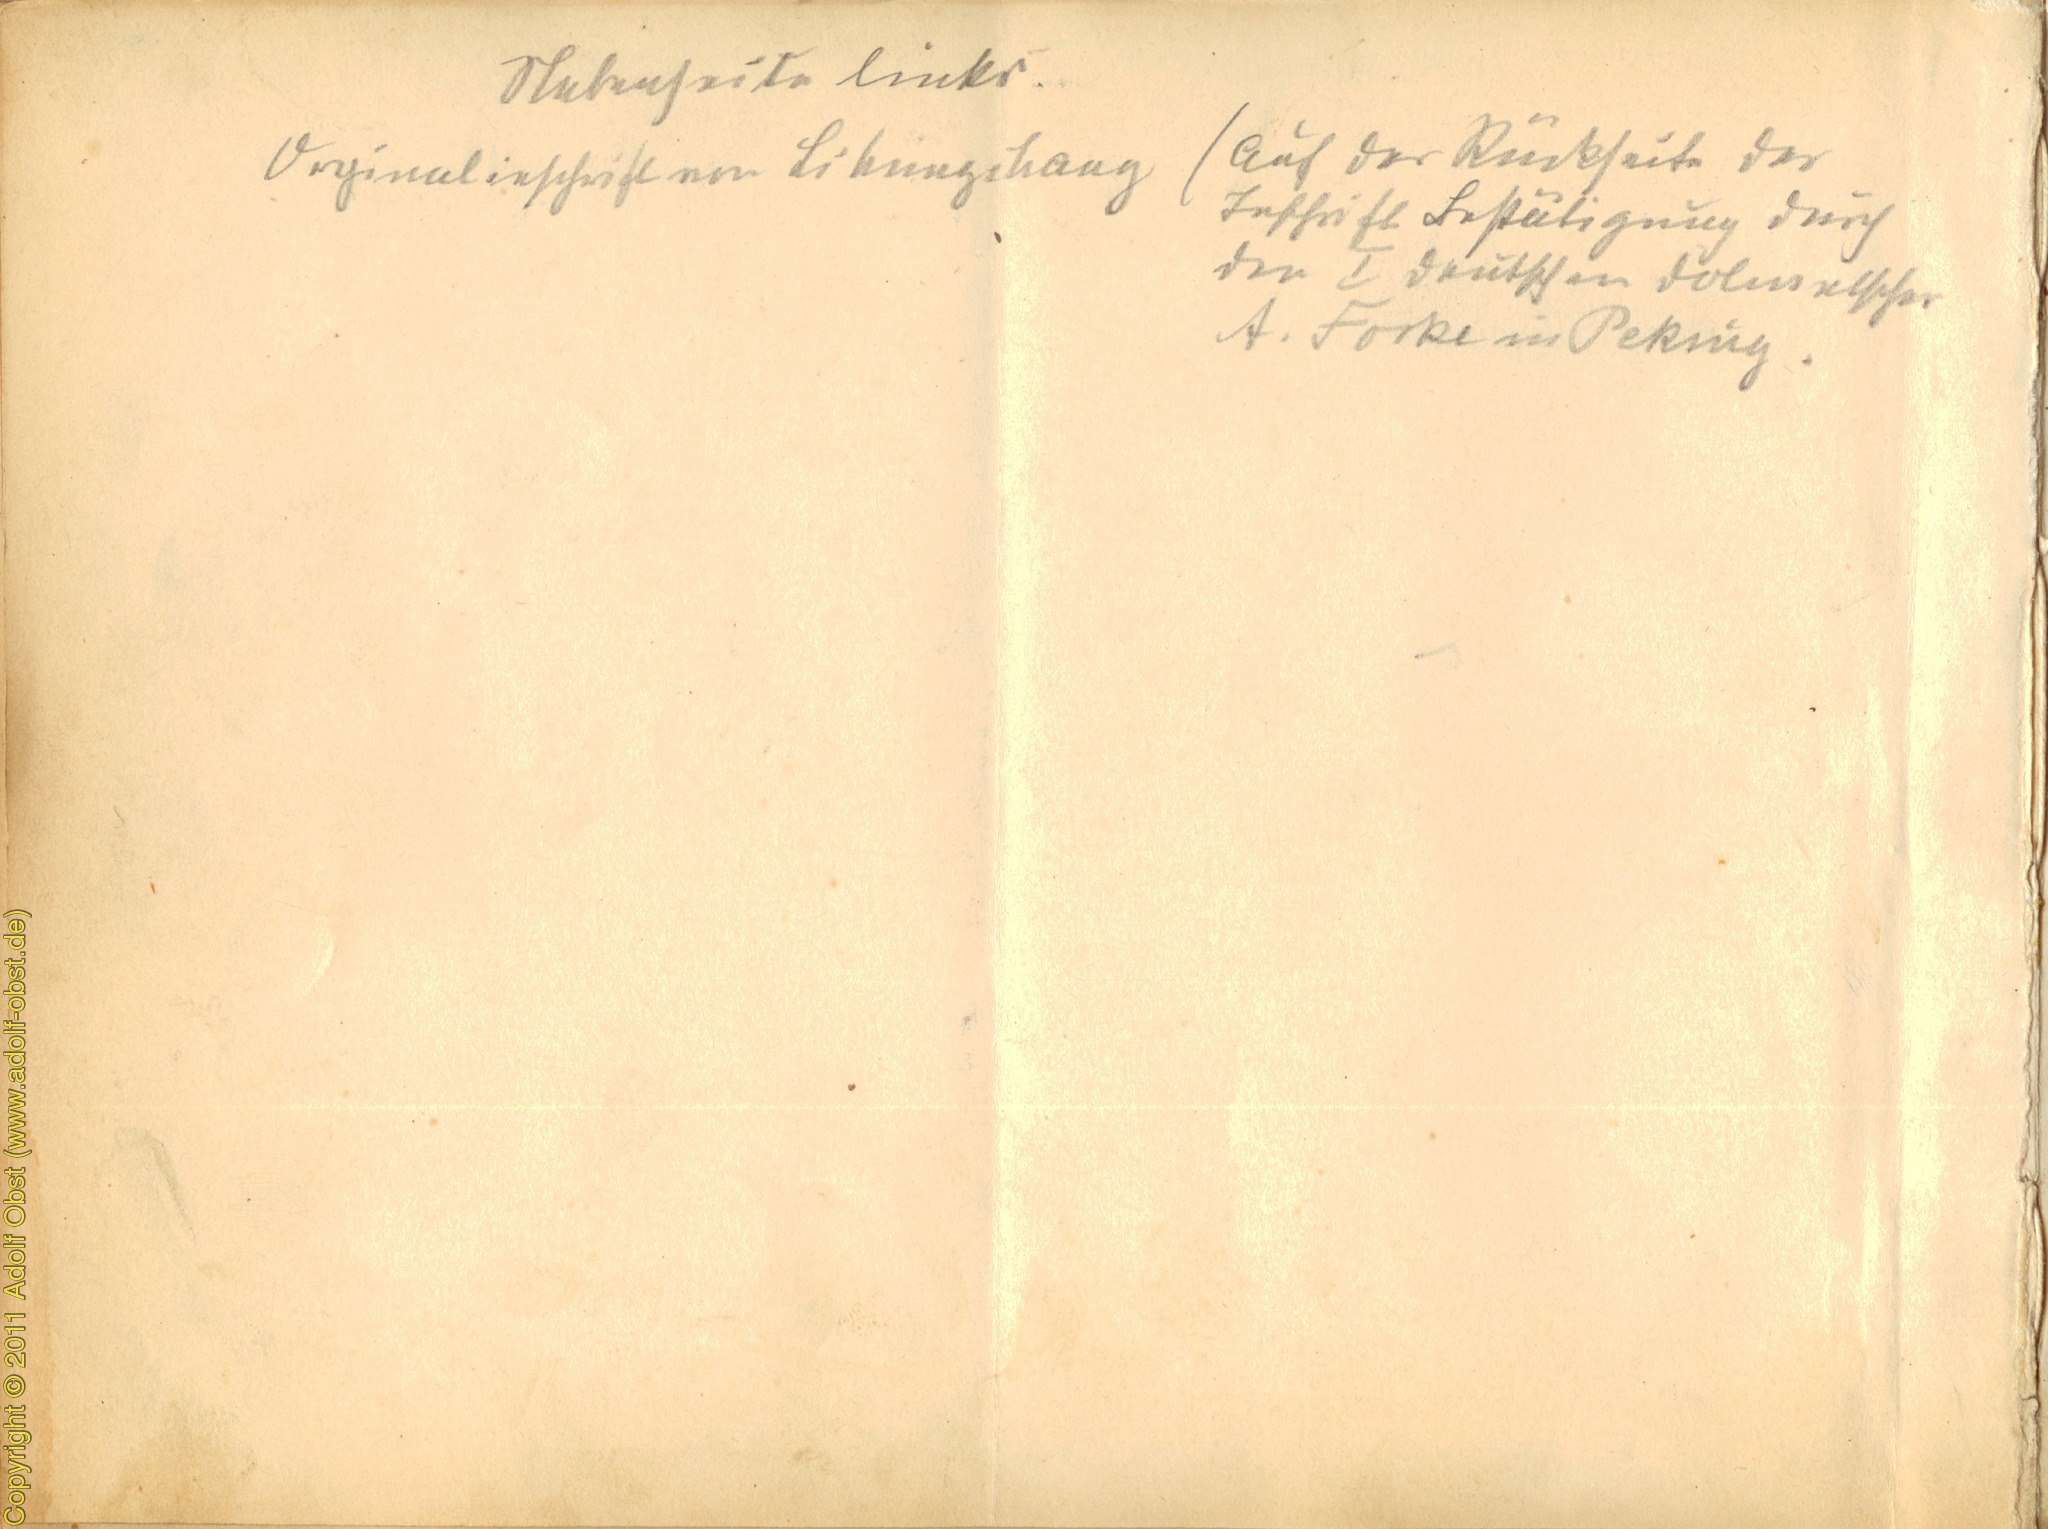 Nebenseite links.
Orginalinschrift von Lihungchang
(Auf der Rückseite der
Inschrift Bestätigung durch
den I deutschen Dolmetscher
A. Forke in Peking.
Copyright © 2011 Adolf Obst (www.adolf-obst.de)